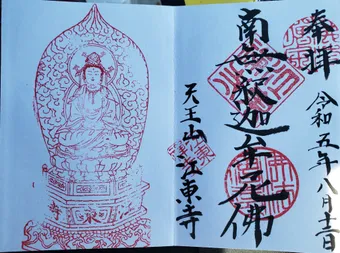 奉拝
令和五年八月十三日
南無釈迦牟尼佛
天王山
江東寺